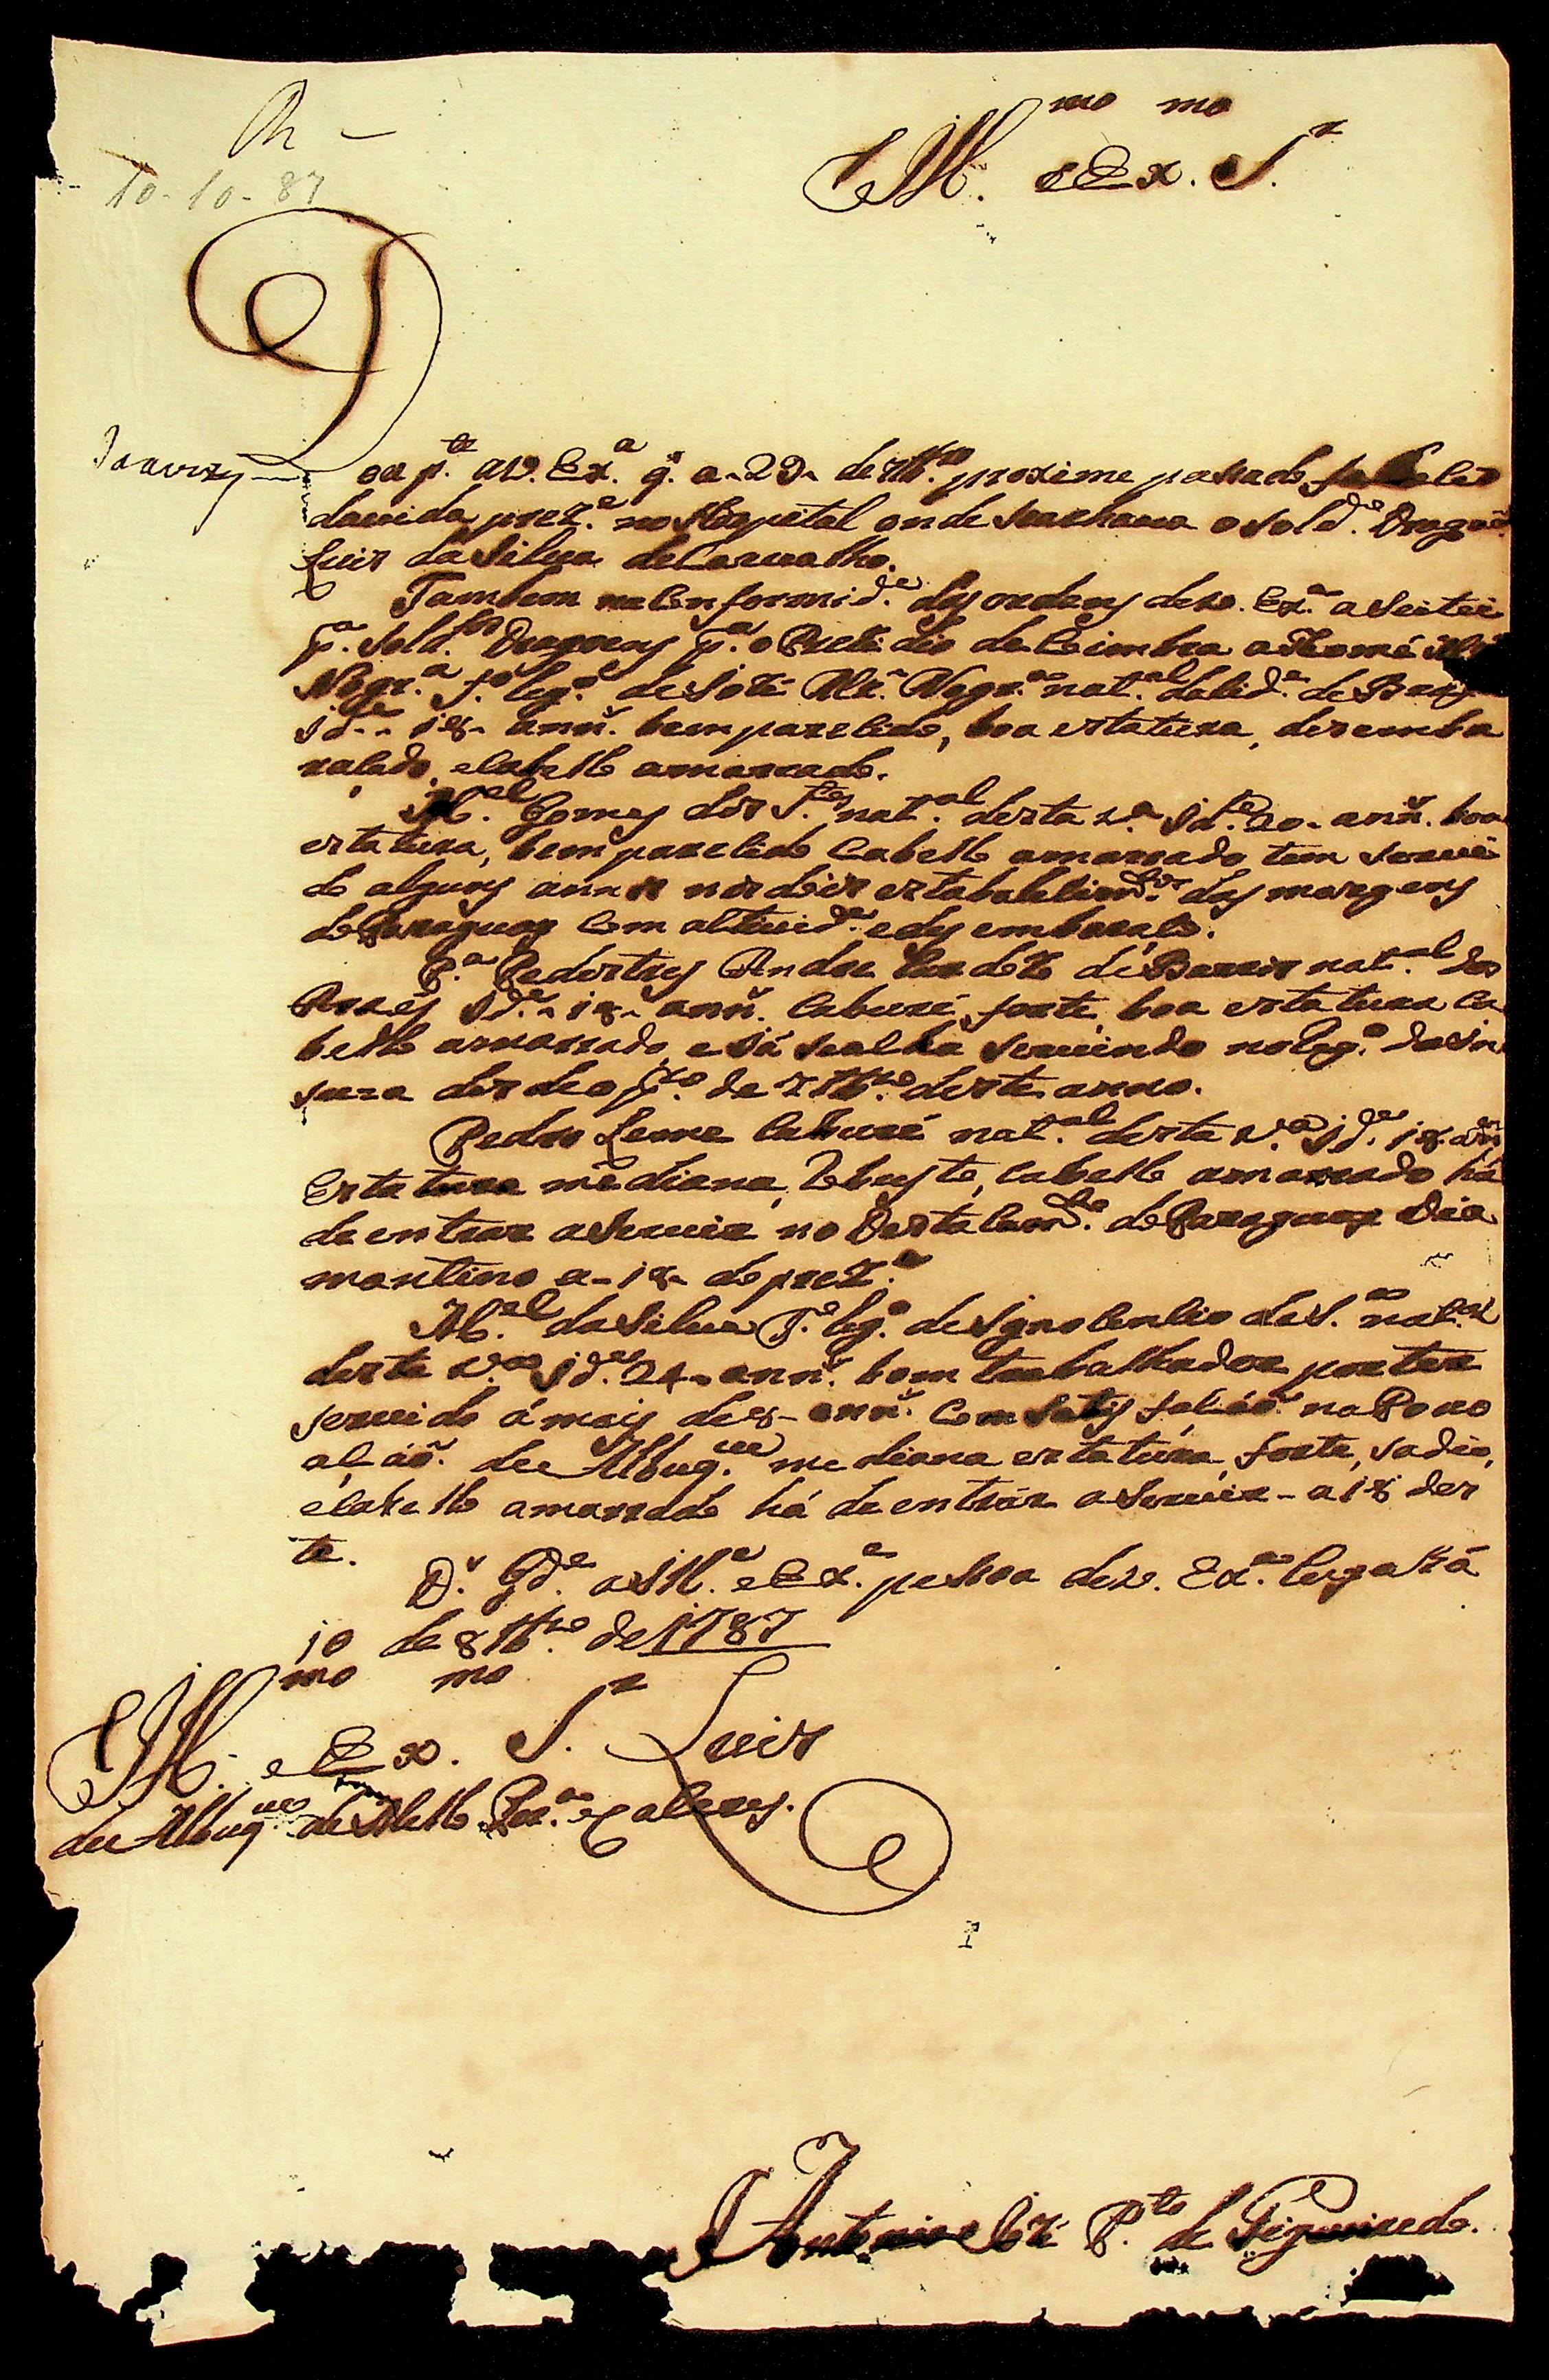 10-10-87
Ill.mo e Ex.mo S.r
Dou p.te a V. Ex.a q. a 29 de 7br.o proximo passado faleceo
da vida prez.e no Hospital onde se achava o sold.o Dragaõ
Luis da Silva de Carvalho.
Tambem na Conformid.e das ordens de V. Ex.a aseitei
p.a Sold.os Dragoens p.a o Prezidio de Coimbra a Thomé
Nogr.a f.o leg.o de José Nogr.a nat.al da Cid.e de
id.e 18 ann.s bem parecido, boa estatura, desemba
raçado, e Cabello amarrado.
M.el Gomes dos S.tos nat.al desta V.a id.e 20 ann.s boa
estatura, bem parecido Cabello amarrado tem servi
do alguns annos nos dois estabalecim.tos das margens
do Paraguay Com actevid.e e dezembaraço.
P.a Pedestres Andre de Barros nat.al do
id.e 18 ann.s Caburé, forte, boa estatura Ca
bello amarrado, e já se acha servindo no lug.o da In
sura desde o p.ro de 7br.o deste anno.
Pedro Leme Caburé nat.al desta V.a id.e 18 ann.s
Estatura mediana, Robusto, Cabello amarrado há
de entrar a Servir no Destacam.to do Paraguay Dia
mantino a 18 do prez.e
M.el da Silva f.o leg.o de Ignocencio de S. nat.al
desta V.a id.e 24 ann.s bom trabalhador por ter
servido á mais de 8 ann.s Com Satisfaçaõ na Povo
açaõ de Albuq.ue mediana estatura, forte, sadio,
e Cabello amarrado há de entrar a Servir a 18 des
te.
D.s G.de a Ill.e e Ex.e pessoa de V. Ex.a Cuyabá
10 de 8br.o de 1787
Ill.mo e Ex.mo S.r Luis
de Albuq.ue de Mello Per.a e Caceres.
Antonio José P.to de Figueiredo.